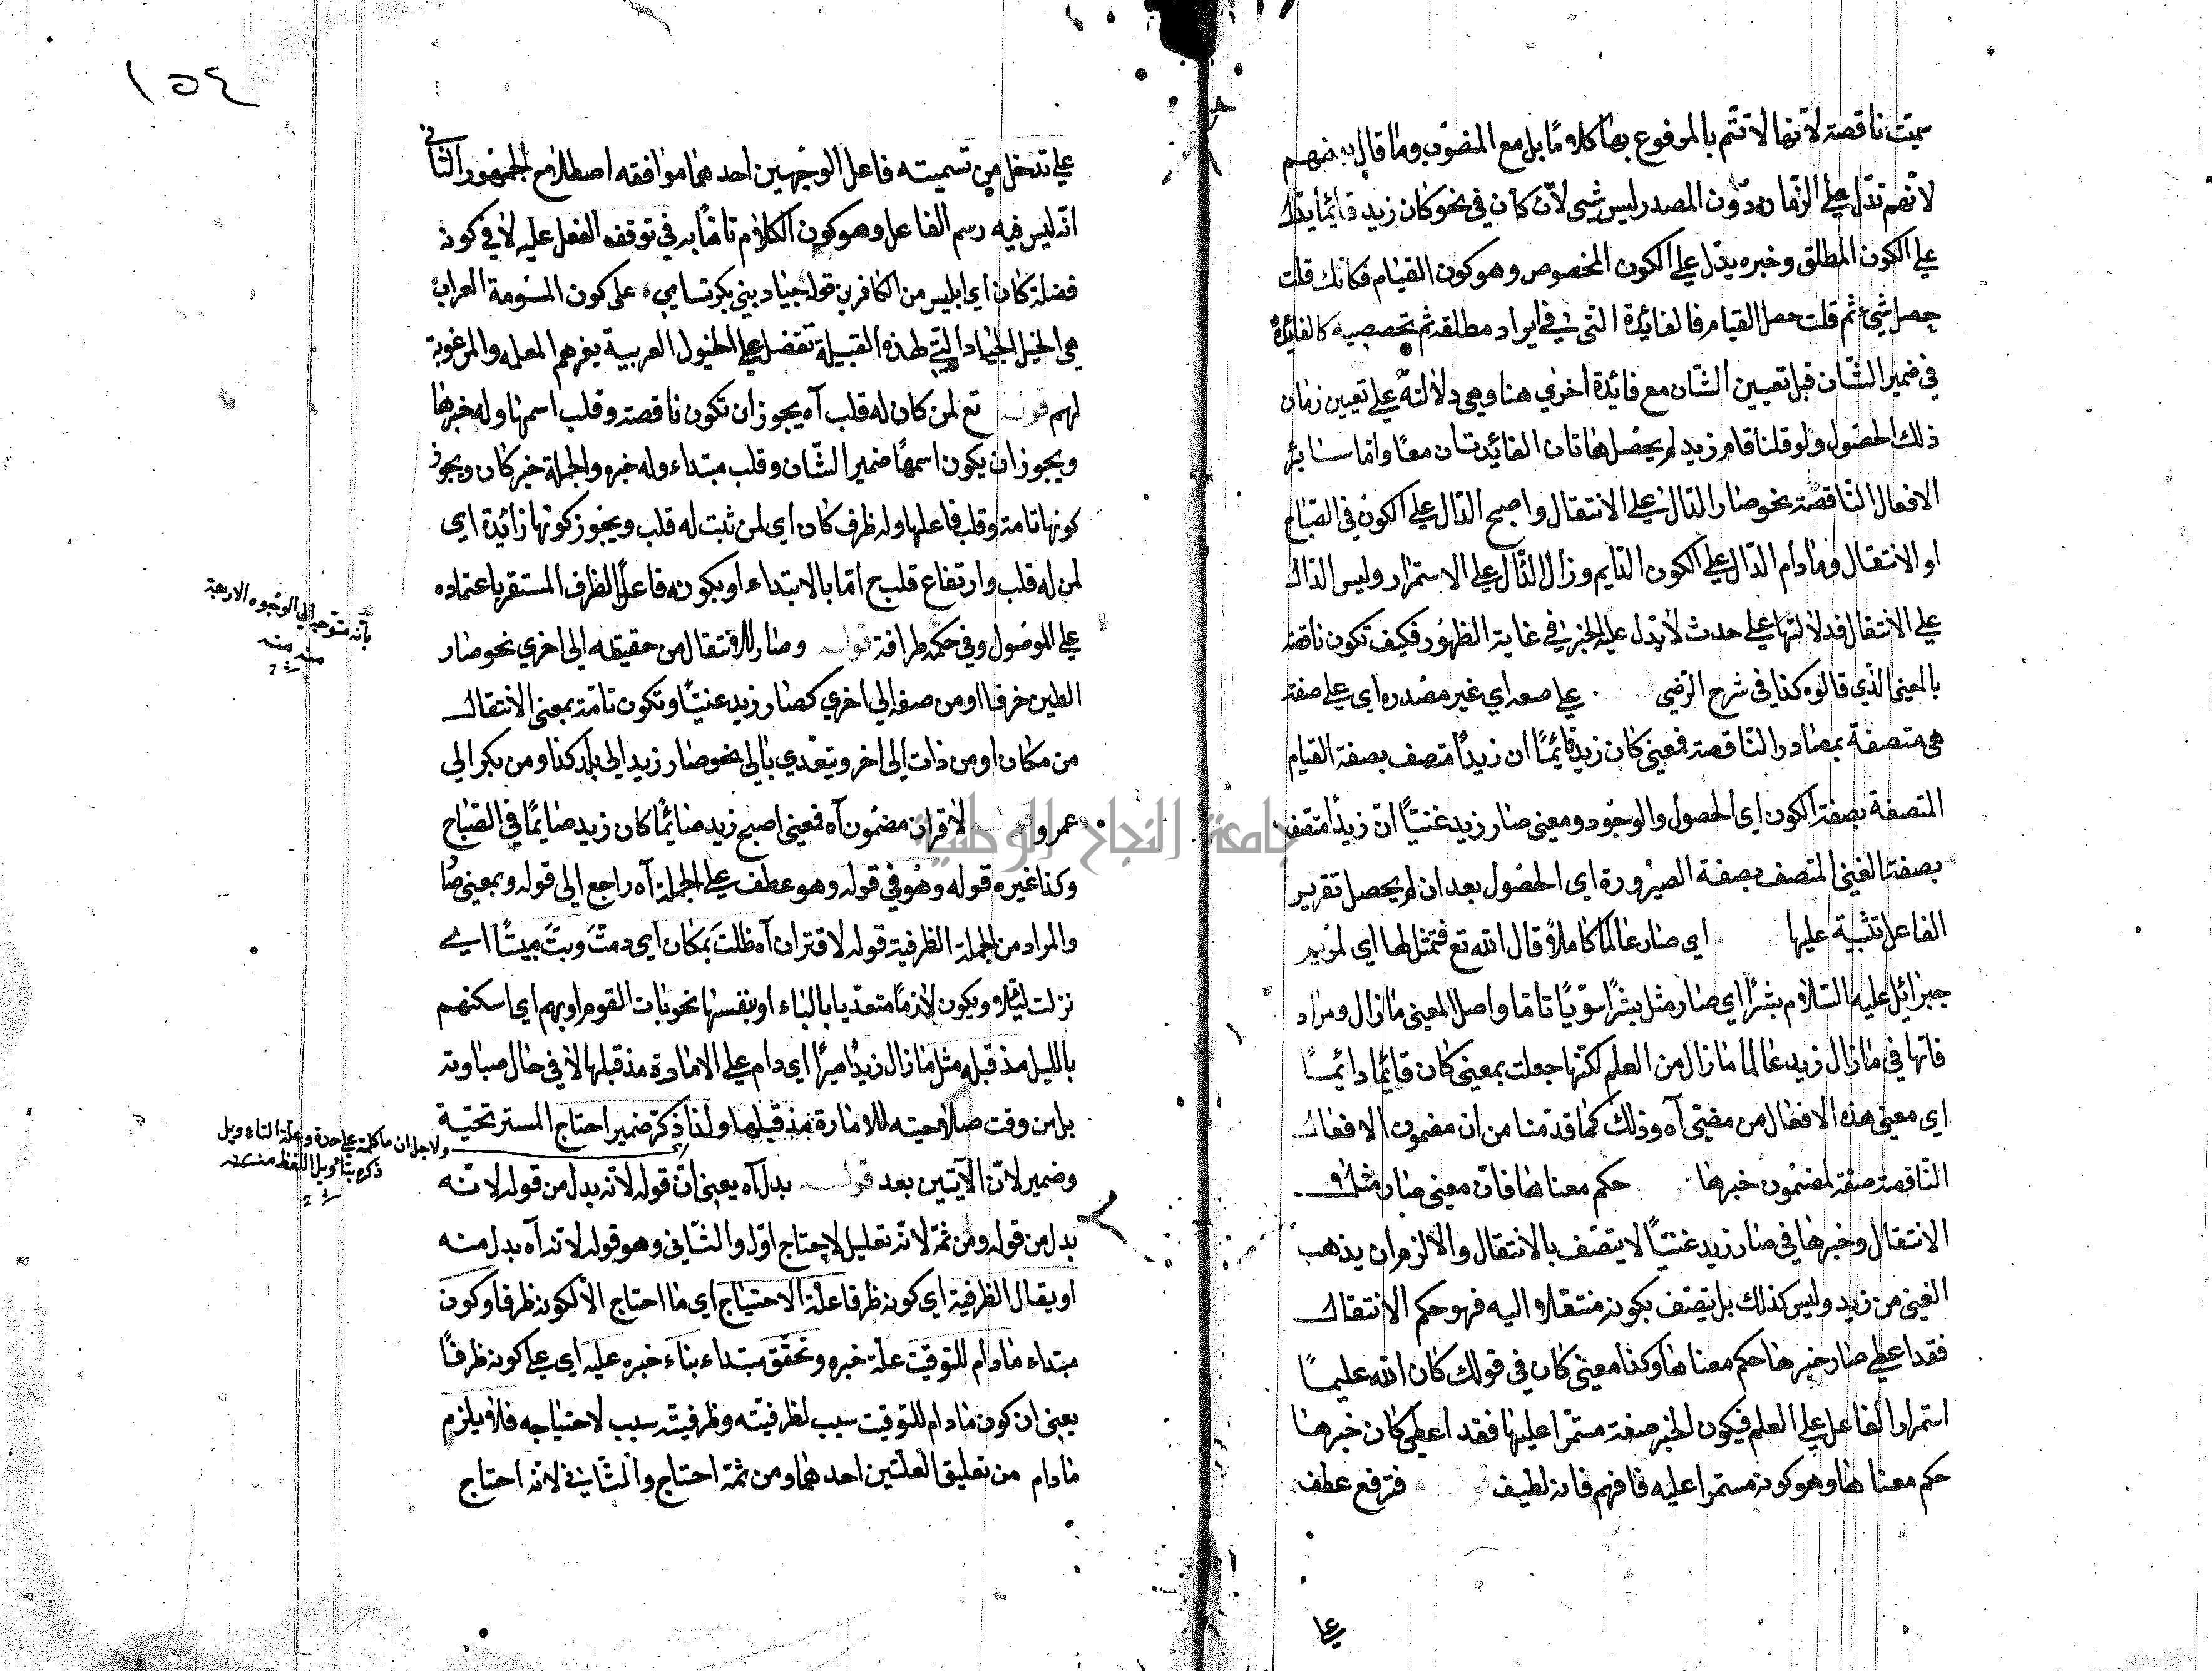 سميت ناقصة لانها لا تتم بالمرفوع بها كلاما بل مع المنصوب وما قال بعضهم
لانهم تدل علي الزمان دون المصدر ليس شيء لان كان في نحو كان زيد قائما يدل
علي الكون المطلق وخبره يدل علي الكون المخصوص وهو كون القيام فكانك قلت
حصل شيء ثم قلت حصل القيام فالفائدة التي في ايراد مطلقه ثم تخصيصه كالفائدة
في ضمير الشان قبل تعيين الشان مع فائدة اخري هنا وهي دلالته علي تعيين زمان
ذلك الحصول ولو قلنا قام زيد لم يحصل هاتان الفائدتان معا واما سائر
الافعال الناقصة نحو صار الدال علي الانتقال واصبح الدال علي الكون في الصباح
او الانتقال وما دام الدال علي الكون الدايم وزال الدال علي الاستمرار وليس الدال
علي الانتفا فدلالتها علي حدث لا يدل عليه الخبر في غاية الظهور فكيف تكون ناقصة
بالمعني الذي قالوه كذا في شرح الرضي علي صفه اي غير مصدره اي علي صفة
هي متصفة بمصادر الناقصة فمعني كان زيد قائما ان زيدا متصف بصفة القيام
المتصفة بصفة الكون اي الحصول والوجود ومعني صار زيد غنيا ان زيدا متصف
بصفة الغني المتصف بصفة الصيرورة اي الحصول بعد ان لم يحصل تقرير
الفاعل تثبية عليها اي صار عالما كاملا وقال الله تع فتمثل لها اي لمريم
جبرائيل عليه السلام بشرا اي صار مثل بشرا سويا تاما واصل المعني ما زال ومراد
فانها في ما زال زيد عالما ما زال من العلم لكنها جعلت بمعني كان قائما دائما
اي معني هذه الافعال من مضيّ آه وذلك كما قدمنا من ان مضمون الافعال
الناقصة صفة لمضمون خبرها حكم معناها فان معني صار مثلا
الانتقال وخبرها في صار زيد غنيا لا يتصف بالانتقال والا لزم ان يذهب
الغني من زيد وليس كذلك بل يتصف بكونه منتقلا اليه فهو حكم الانتقال
فقد اعطي صار خبرها حكم معناها وكذا معني كان في قولك كان الله عليما
استمرار الفاعل علي العلم فيكون الخبر صفة مستمرا عليها فقد اعطي كان خبرها
حكم معناها وهو كونه مستمرا عليه فافهم فانه لطيف فترفع عطف
١٥٤
علي تدخل من تسميته فاعل الوجهين احدهما موافقه اصطلاح الجمهور الثاني
انه ليس فيه رسم الفاعل وهو كون الكلام تاما به في توقف الفعل عليه لا في كونه
فضلة كان اي ابليس من الكافرين قوله جياد بني بكر تسامي علي كون المسومة العراب
هي الخيل الجياد التي لهذه القبيلة تفضل علي الخيول العربية يغرهم المعلمه والمرغوبة
لهم قوله تع لمن كان له قلب آه يجوز ان تكون ناقصة وقلب اسمها وله خبرها
ويجوز ان يكون اسمها ضمير الشان وقلب مبتداء وله خبره والجملة خبر كان ويجوز
كونها تامة وقلب فاعلها وله ظرف كان اي لمن ثبت له قلب ويجوز كونها زائدة اي
لمن له قلب وارتفاع قلب ح اما بالابتداء او بكونه فاعلا الظرف المستقر باعتماده
علي الموصول وفي حكمه ظرافة قوله وصار للانتقال من حقيقه الي اخري نحو صار
الطين خزفا او من صفه الي اخري كصار زيد غنيا وتكون تامة بمعني الانتقال
من مكان او من ذات الي اخر ويتعدي بالي نحو صار زيد الي بلد كذا ومن بكر الي
عمرو لاقران مضمون آه فمعني اصبح زيد صائما كان زيد صايما في الصباح
وكذا غيره قوله وهو في قوله وهو عطف علي الجملة آه راجع الي قوله وبمعني صا
والمراد من الجملة الظرفية قوله لاقتران آه ظلت بمكان اي دمت وبت مبيتا اي
نزلت ليلا ويكون لازما متعديا بالباء او بنفسها نحو بات القوم او بهم اي اسكنهم
بالليل مذ قبله مثل ما زال زيد اميرا اي دام علي الامارة مذ قبلها لا في حال صباوته
بل من وقت صلاحيته للامارة مذ قبلها ولذا ذكره ضمير احتاج المستتر تحتية
وضمير لان الآيتين بعد قوله بدل آه يعني ان قوله لانه بدل من قوله لانه
بدل من قوله ومن ثمة لانه تعليل لاحتاج اول والثاني وهو قوله لانه آه بدل منه
او يقال الظرفية اي كونه ظرفا علة الاحتياج اي ما احتاج الا لكونه ظرفا وكون
مبتداء مادام للتوقيت علة خبره وتحقق مبتداء بناء خبره عليه اي علي كونه ظرفا
يعني ان كون مادام للتوقيت سبب لظرفيته وظرفيته سبب لاحتياجه فلا يلزم
مادام من تعليق العلتين احدهما ومن ثمة احتاج والثاني لانه احتاج
بانه متوجه الي الوجوه الاربعة
منه
ولاجل ان ما كلمة علي حدة وعلة التاءويل
ذكره بتاءويل اللفظ منه
جامعة النجاح الوطنية